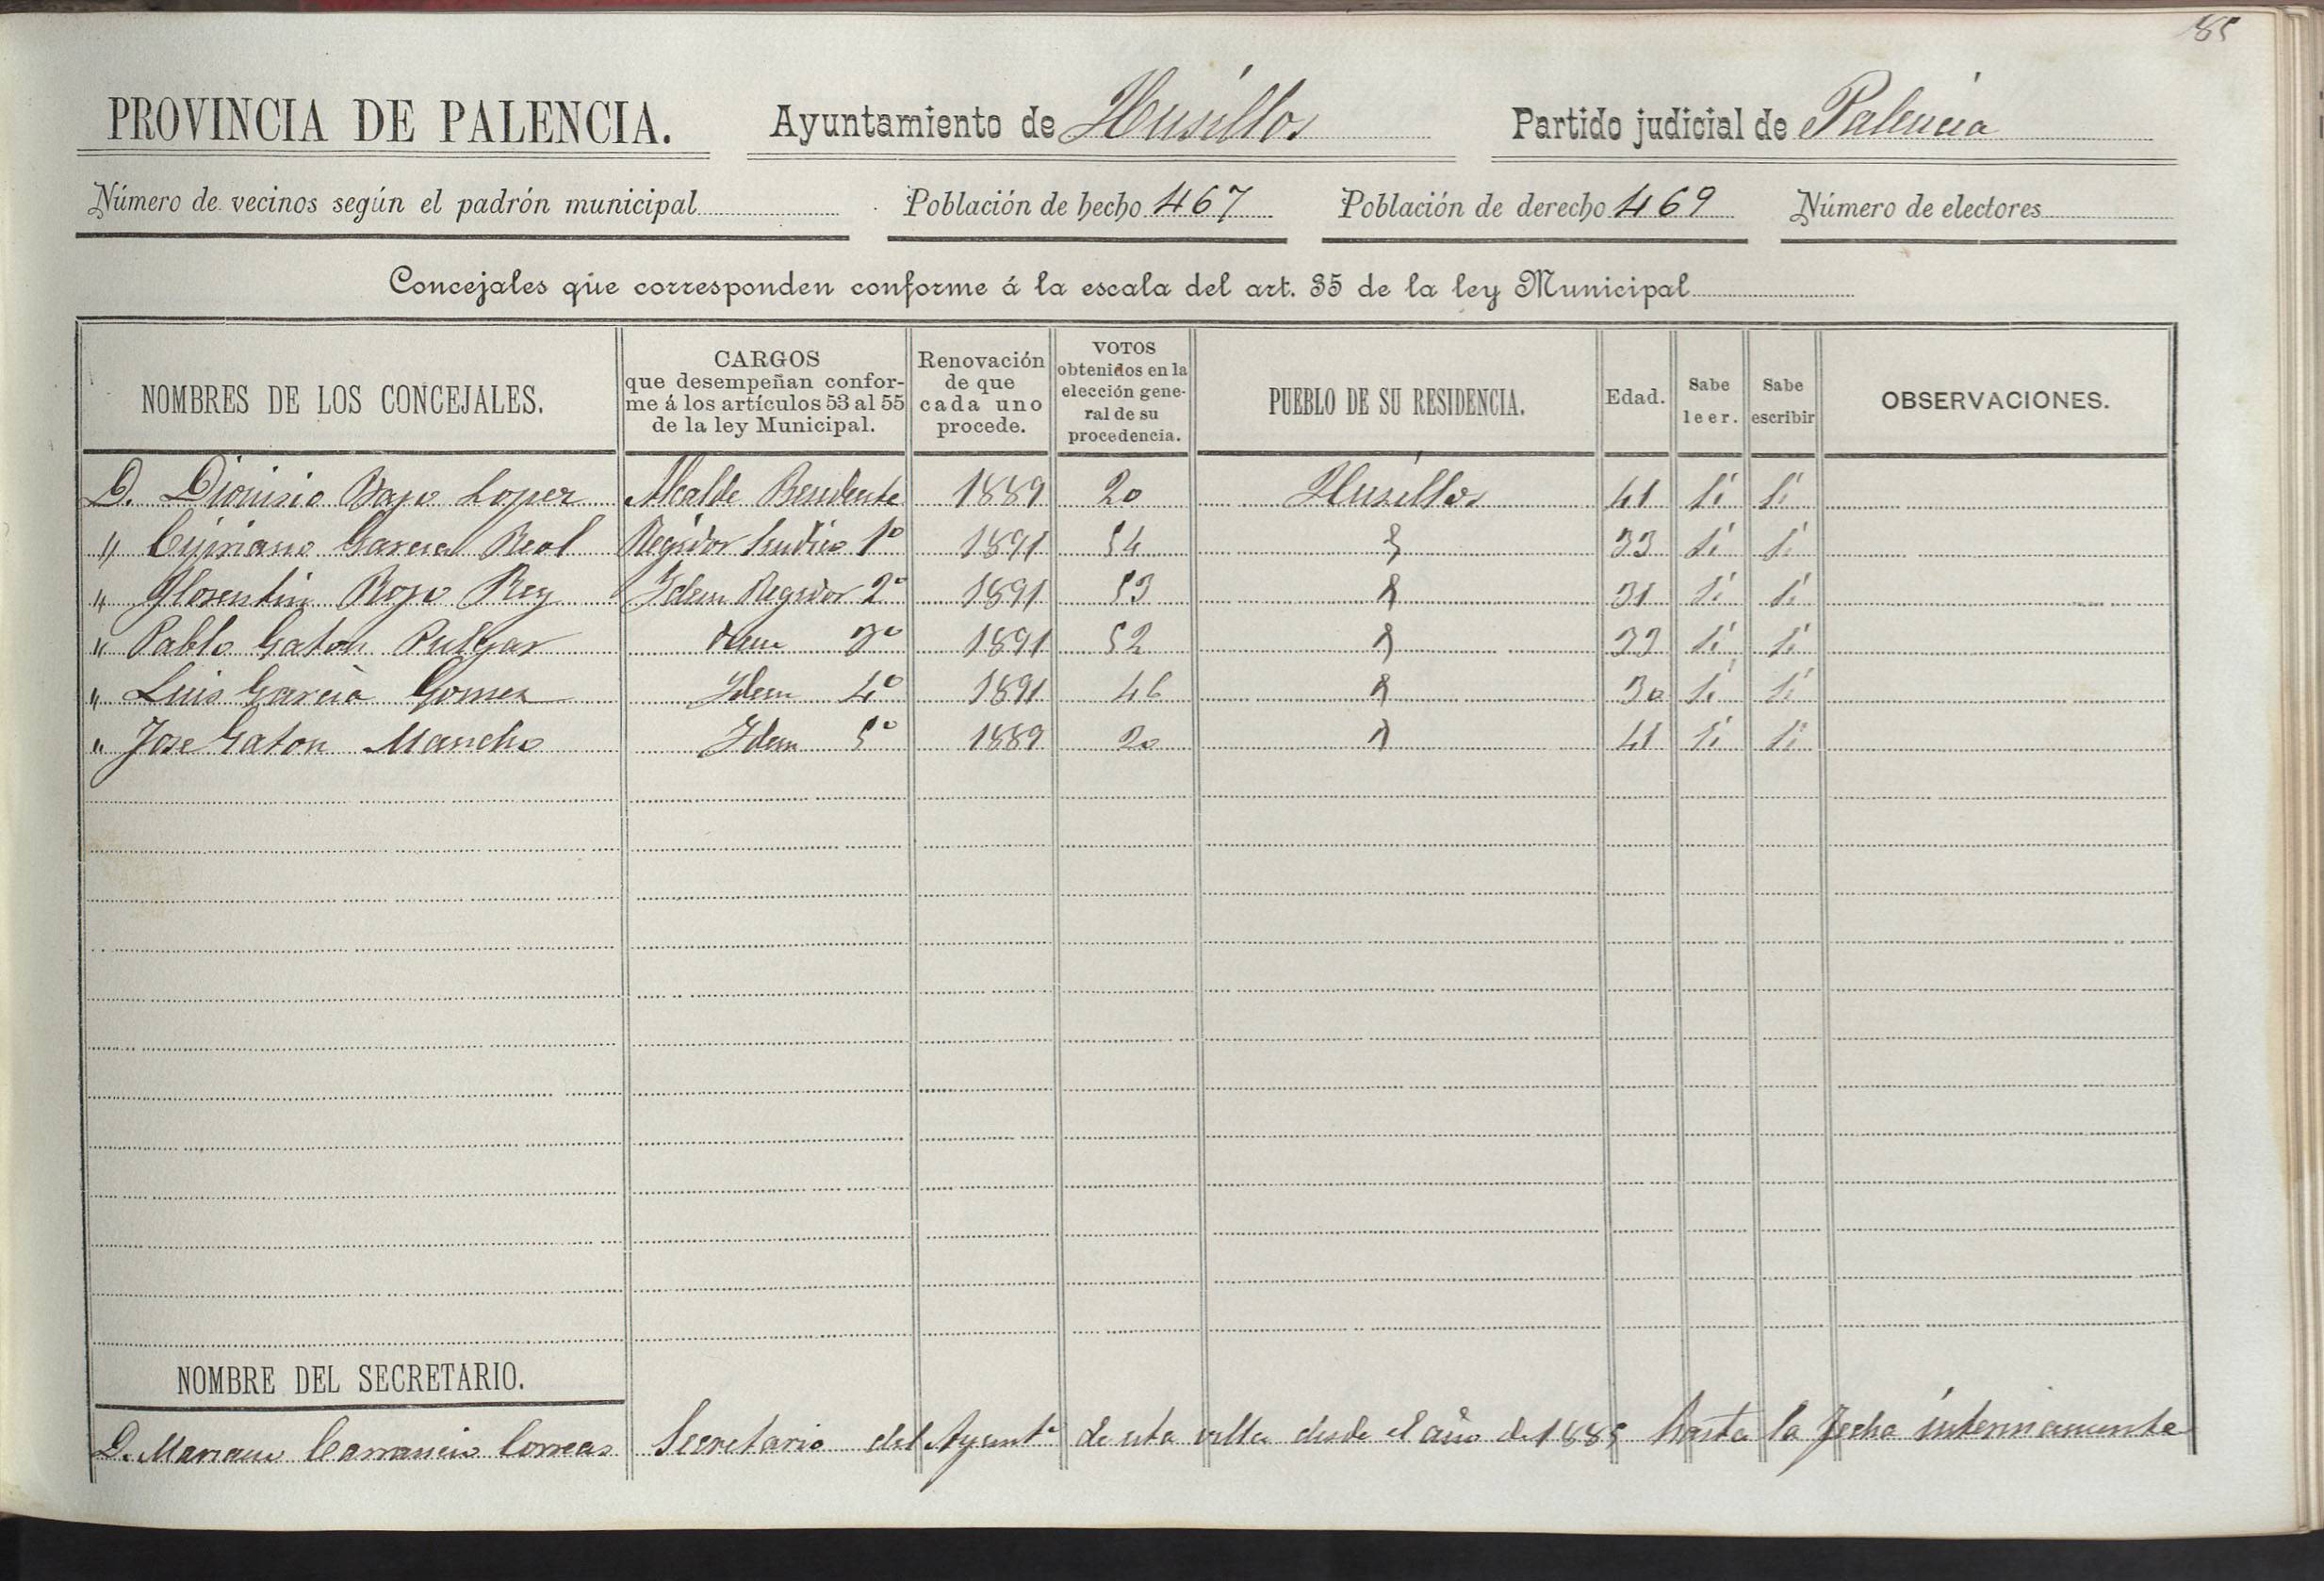 185
PROVINCIA DE PALENCIA. Ayuntamiento de Husillos Partido judicial de Palencia
Número de vecinos según el padrón municipal Población de hecho 467 Población de derecho 469 Número de electores
Concejales que corresponden conforme á la escala del art. 35 de la ley Municipal
NOMBRES DE LOS CONCEJALES. CARGOS que desempeñan conforme á los artículos 53 al 55 de la ley Municipal. Renovación de que cada uno procede. VOTOS obtenidos en la elección general de su procedencia. PUEBLO DE SU RESIDENCIA. Edad. Sabe leer. Sabe escribir OBSERVACIONES.
D. Dionisio Bajo Lopez Alcalde Presidente 1889 20 Husillos 41 Si Si
" Cipriano Garcia Real Regidor Sindico 1º 1891 54 33 Si Si
" Florentin Rojo Rey Idem Regidor 2º 1891 53 31 Si Si
" Pablo Gaton Pulgar Idem 3º 1891 52 Si Si
" Luis Garcia Gomez Idem 4º 1891 46 30 Si Si
" Jose Gaton Mancho Idem 5º 1889 20 41 Si Si
NOMBRE DEL SECRETARIO.
D. Mariano Carrancio Correas Secretario del Ayuntº de esta villa desde el año de 1885 hasta la fecha interinamente